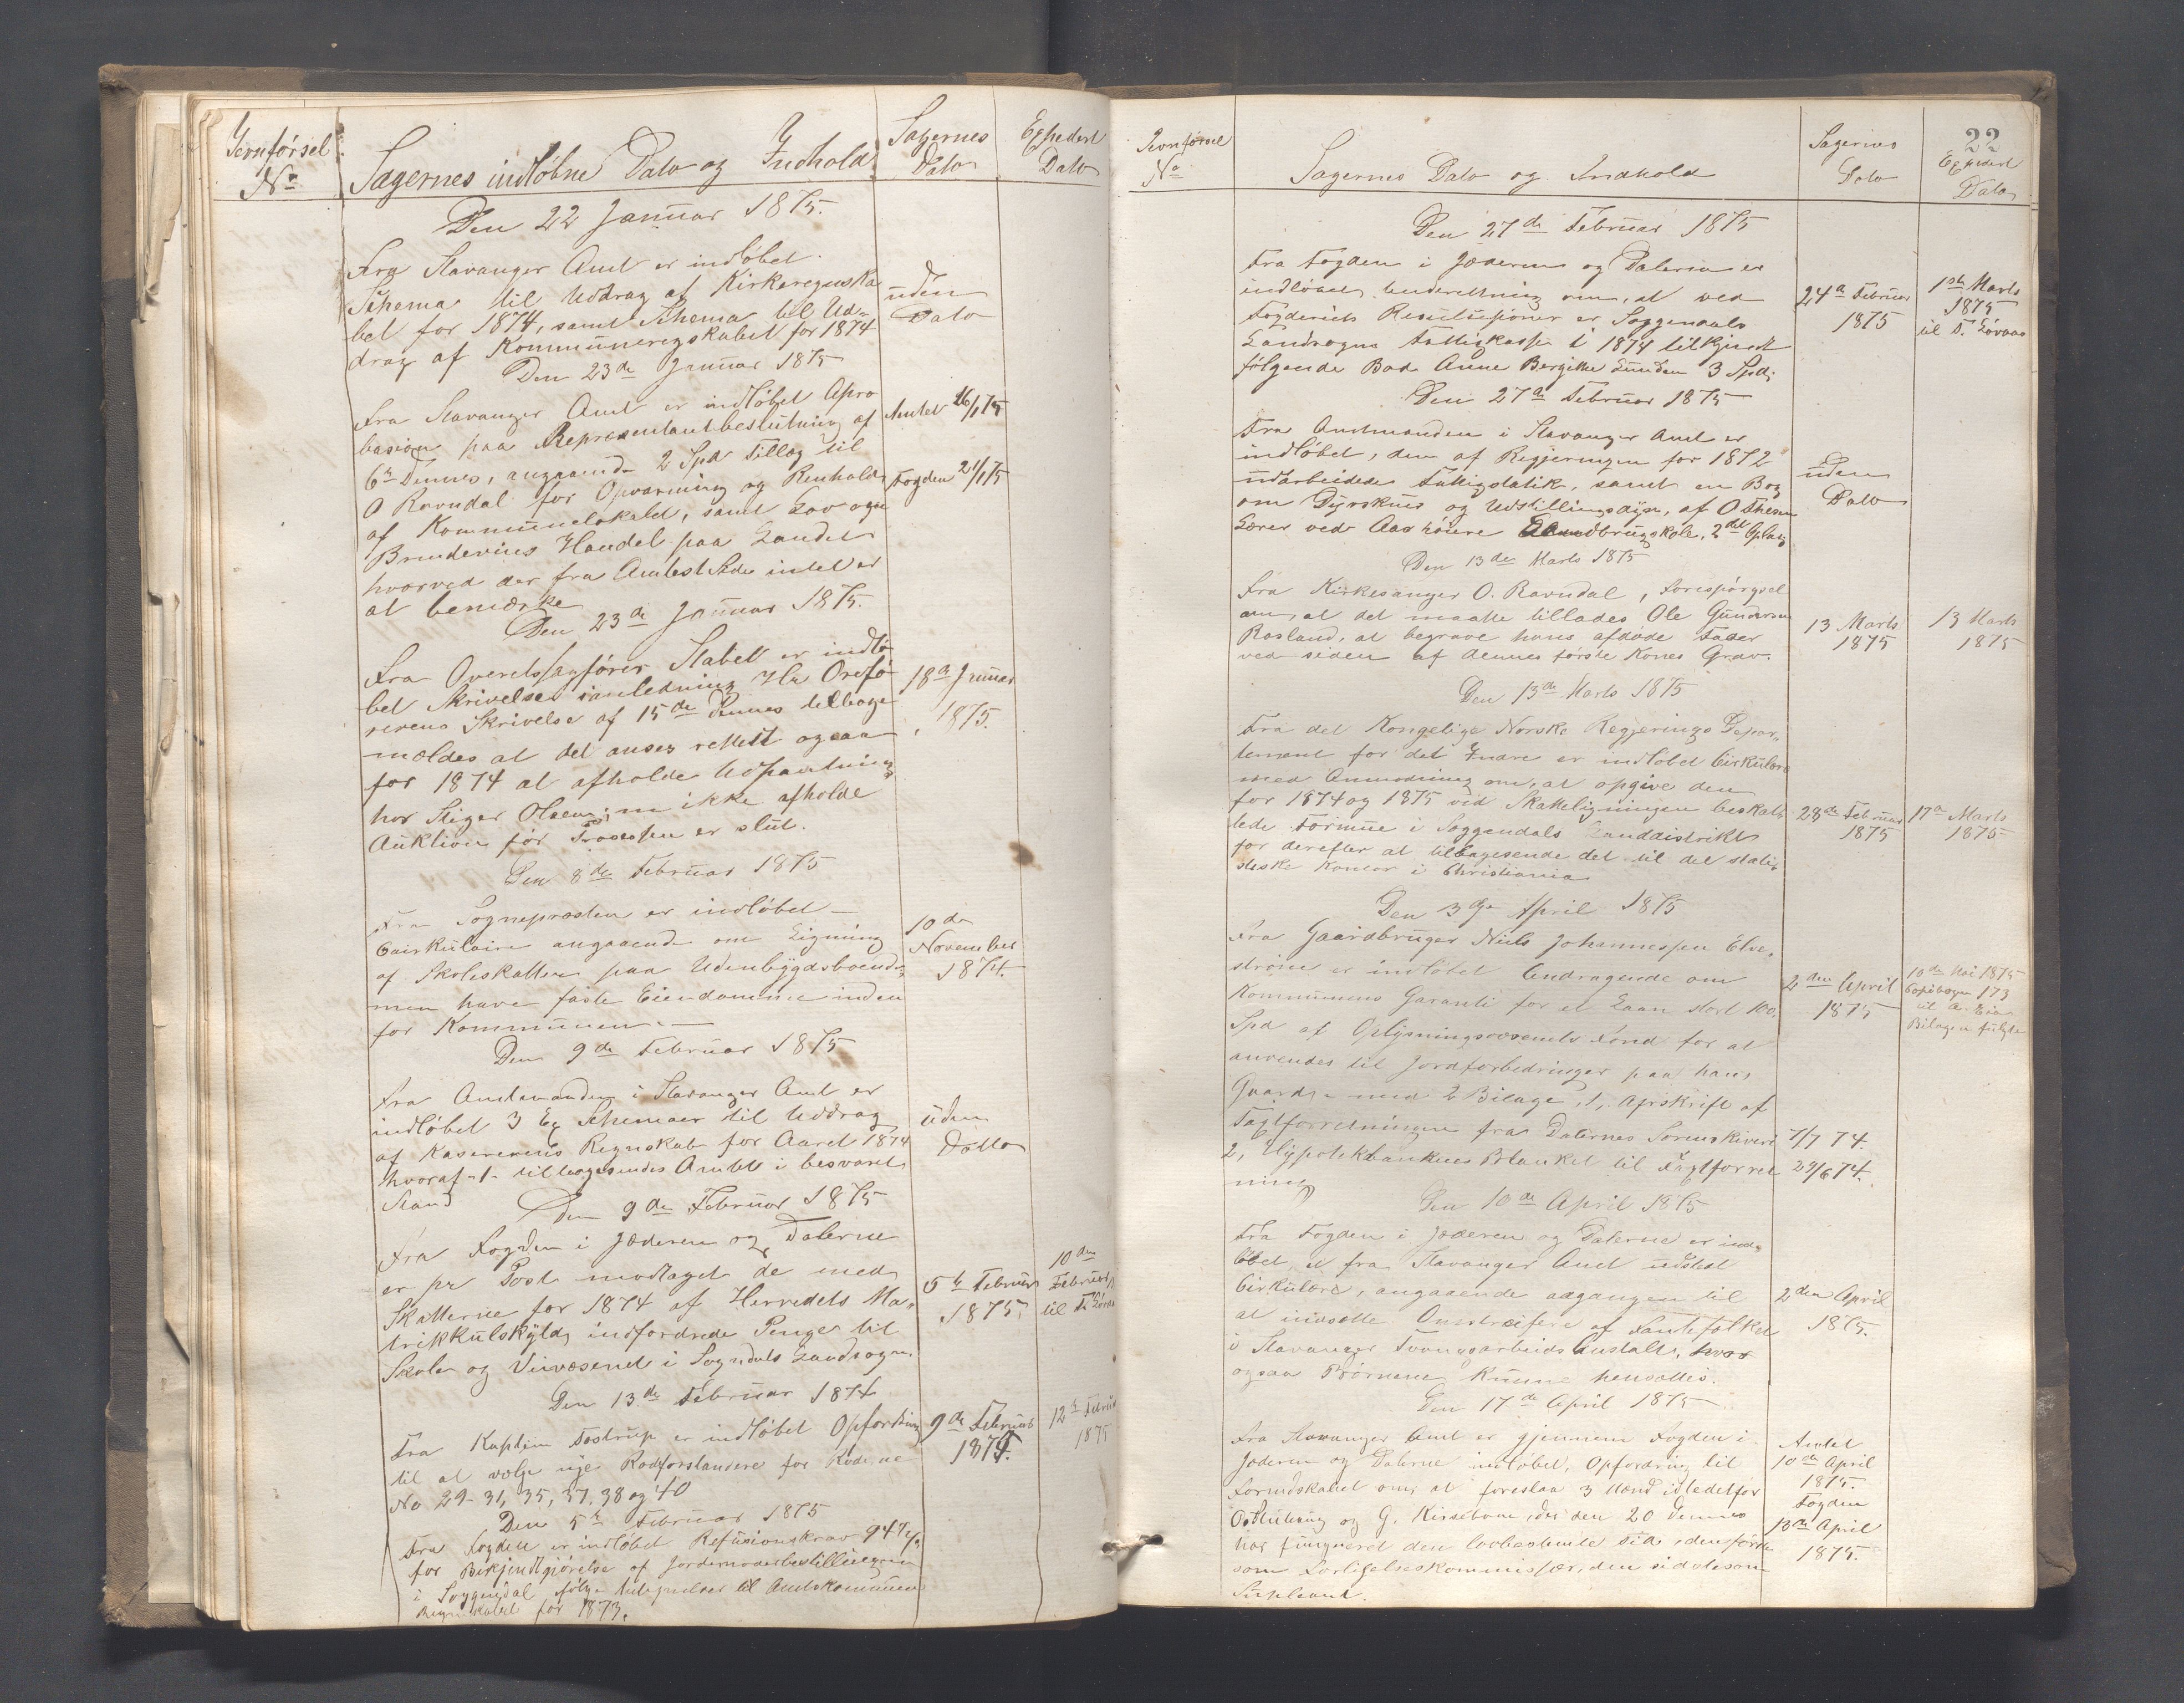 Jevnførsel
No
Sagernes indløbne Dato og Indhold
Sagernes
Dato
Expedert
Dato
Den 22 Januar 1875.
Fra Stavanger Amt er indløbet
Schema til Uddrag af Kirkeregnska
bet for 1874, samt Schema til Ud-
drag af Kommuneregskabet for 1874
uden
Dato
Den 23de Januar 1875
Fra Stavanger Amt er indløbet Apro
basion paa Representantbeslutning af
6te Dennes, angaaende 2 Spd Tillæg til
O Ravndal for Opvarming og Renhold
af Kommunelokalet, samt Lov om
Brændevins Handel paa Landet
hvorved der fra Amtets Side intet er
at bemærke
Amtet 16/1 75
Fogden 21/1 75
Den 23de Januar 1875.
Fra Overetssagfører Stabel er indlø
bet Skrivelse i anledning Hr Ordfø
rerens Skrivelse af 15de Dennes tilbage
mældes at det anses rettest ogsaa
for 1874 at afholde Udpantning
hos Stiger Olsen; m ikke afholde
Auktion før Prosessen er slut.
18de Januar
1875.
Den 8de Februar 1875
Fra Sognepresten er indløbet
Cirkulaire angaaende om Ligning
af Skoleskatten paa Udenbygdsboende
men have faste Eiendomme inden
for Kommunen.
10de
November
1874
Den 9de Februar 1875
Fra Amtmanden i Stavanger Amt er
indløbet 3 Ex Schemaer til Uddrag
af Kasererens Regnskab for Aaret 1874
hvoraf -1- tilbagesendes Amtet i besvaret
Stand
uden
Datto
Den 9de Februar 1875
Fra Fogden i Jæderen og Dalerne
er pr Post modtaget de med
Skatterne for 1874 af Herredets Ma-
trikkulskyld indfordrede Penge til
Skole og Veivæsenet i Sogndals Landsogn
5te Februar
1875,
10den
Februar
til
Den 13de Februar 1874
Fra Kaptein Tostrup er indløbet Opfordring
til at vælge nye Rodforstandere for Rode ne
No 29-31, 35, 37, 38 og 40
9de Februar
1875.
12te Februar
1875
Den 5te Februar 1875
Fra Fogden er indløbet Refusionskrav
for Bekjendtgjørelse af Jordemoderbestillingen
i Soggendal ifølge Antegnelser til Amtskommune
Regnskabet for 1873.
Jevnførsel
No
Sagernes Dato og Indhold
Sagernes
Dato
22
Expedert
Dato
Den 27de Februar 1875
Fra Fogden i Jæderen og Dalerne er
indløbet underetning om, at ved
Fogderiets Resulusjoner er Soggendals
Landsogns Fattigkasse i 1874 tilkjendt
følgende Bod Anne Bergitte Lunden 3 Spd.
24de Februar
1875
1ste Marts
1875
til T. Løvaas
Den 27de Februar 1875
Fra Amtmanden i Stavanger Amt er
indløbet, den af Regjeringen for 1872
udarbeidede Fattigstatik, samt en Bog
om Dyrskuer og Udstillingsdyr, af O
Lærer ved Aas høiere Landbrugskole, 2det Oplag
uden
Dato
Den 13de Marts 1875
Fra Kirkesanger O. Ravndal, forespørgsel
om, at det maatte tillades Ole Gundersen
Rosland, at begrave hans afdøde Fader
ved siden af dennes første Kones Grav.
13 Marts
1875
13 Marts
1875
Den 13de Marts 1875
Fra det Kongelige Norske Regjerings Depar-
tement for det Indre er indløbet Cirkulære
med Anmodning om, at opgive den
for 1874 og 1875 ved Skateligningen beskat-
tede Formue i Soggendals Landdistrikt
for derefter at tilbagesende det til det stati-
stiske Kontor i Christiania
28de Februar
1875
17de Marts
1875
Den 3die April 1875
Fra Gaardbruger Niels Johannessen Elve-
strøne er indløbet Andragende om
Kommunens Garanti for et Laan stort 100.
Spd af Oplysningsvæsenets Fond for at
anvendes til Jordforbedringer paa hans
Gaard, med 2 Bilage, 1, Afskrift af
Taxtforretningen fra Dalernes Sorenskriveri
2, Hypotekbankens Blanket til Taxtforret
ning
2den April
1875
10de Mai 1875
Copibogen 173
til A. Eia
Bilagene fulgte
7/7 74.
29/6 74.
Den 10de April 1875
Fra Fogden i Jæderen og Dalerne er ind-
løbet et fra Stavanger Amt udstæt
Cirkulære, angaaende adgangen til
at indsætte Omstreifere af Fantefølket
i Stavanger Tvangsarbeids Anstalt, hvor
ogsaa Børnene kunne hensættes.
2den April
1875.
Den 17de April 1875
Fra Stavanger Amt er gjennem Fogden i
Jæderen og Dalerne indløbet, Opfordring til
Formdskabet om, at foreslaa 3 Mænd istedetfor
O og G. Kirsebom, der den 20 Dennes
har fungueret den lovbestemte tid, den første
som Forligelseskommissær, den sidste som
Supleant.
Amtet
10de April
1875.
Fogden
13de April
1875.